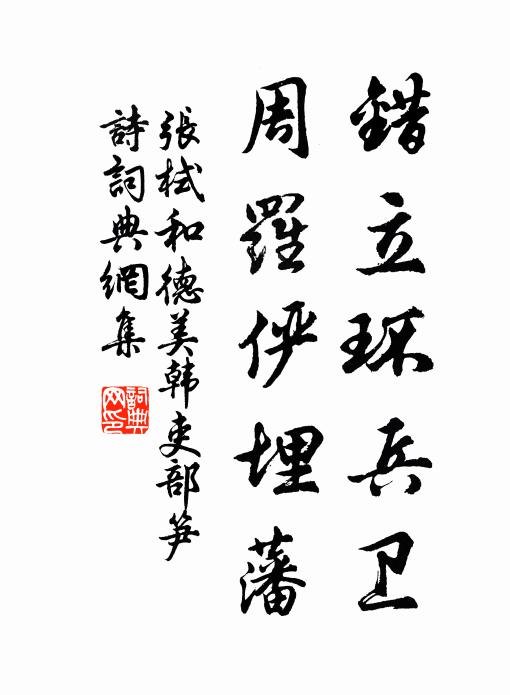 錯立环兵卫
周羅俨埋藩
張栻和德美韩吏部笋
詩詞典網集
詞典网印